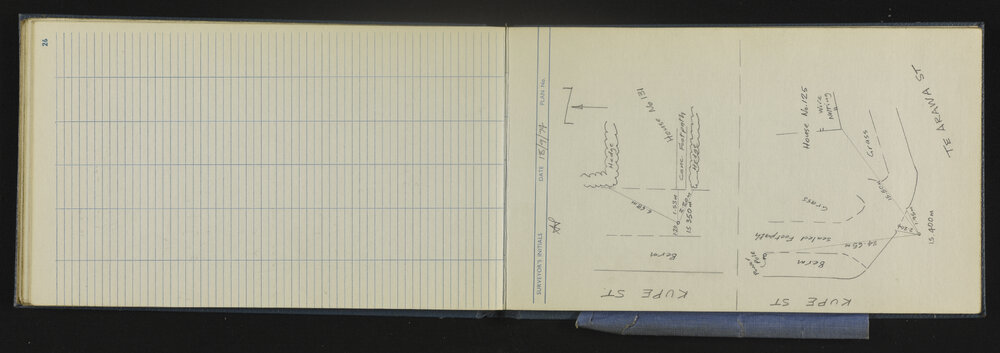 26
SURVEYOR'S INITIALS
DATE 18/9/74
PLAN No.
House No 131
Hedge
Conc Footpath
Hedge
6.58m
1.53m
2.20m
15.350m
Berm
KUPE ST.
House No. 125
Wire
Netting
Grass
TE ARAWA ST
Grass
Sealed Footpath
Power
Pole
Berm
14.65m
15.400m
KUPE ST